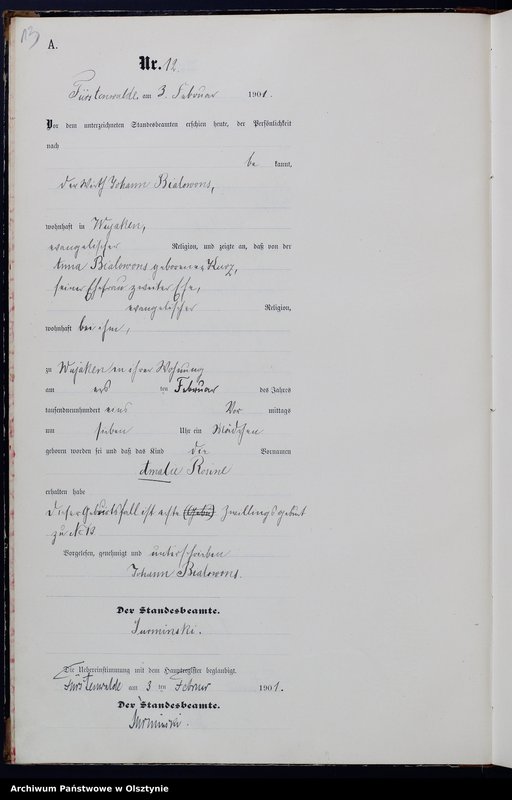 13
A.
Nr. 12.
Fürstenwalde, am 3. Februar 1901.
Vor dem unterzeichneten Standesbeamten erschien heute, der Persönlichkeit
nach
be kannt,
der Wirth Johann Bialowons,
wohnhaft in Wujaken,
evangelischer Religion, und zeigte an, daß von der
Anna Bialowons geborenen Kurz,
seiner Ehefrau zweiter Ehe,
evangelischer Religion,
wohnhaft bei ihm,
zu Wujaken in ihrer Wohnung
am ten Februar des Jahres
tausendneunhundert eins Vor mittags
um sieben Uhr ein Mädchen
geboren worden sei und daß das Kind die Vornamen
Amalie Rosine
erhalten habe
Dieser Geburtsfall ist erste Zwillingsgeburt
zu No 13
Vorgelesen, genehmigt und unterschrieben
Johann Bialowons.
Der Standesbeamte.
Surminski.
Die Uebereinstimmung mit dem Hauptregister beglaubigt.
Fürstenwalde am 3 ten Februar 1901.
Der Standesbeamte.
Surminski.
Archiwum Państwowe w Olsztynie